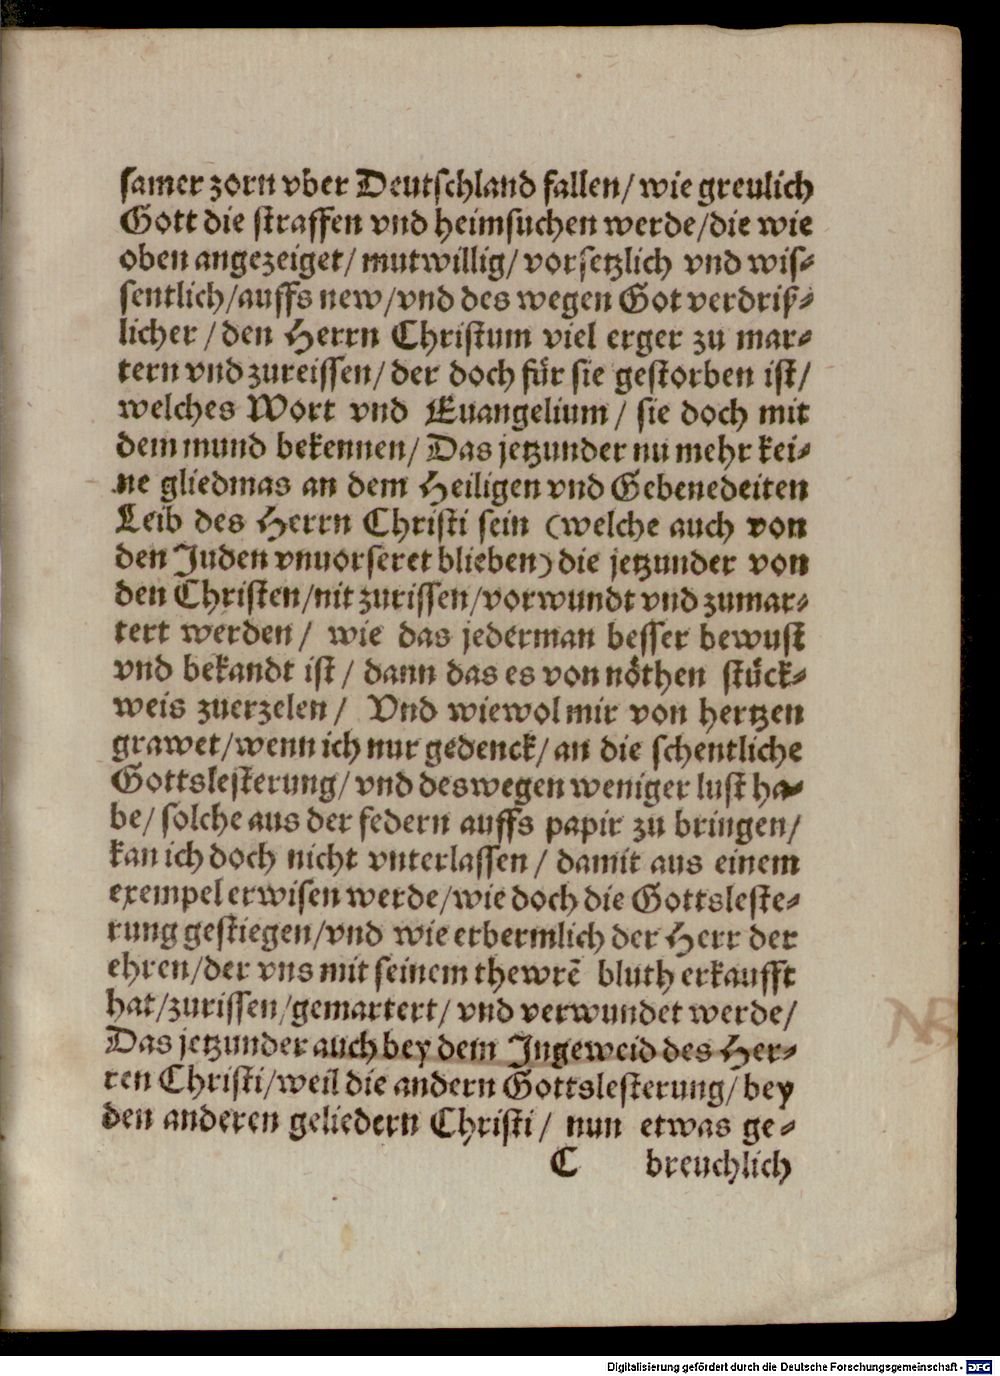 samer zorn vber Deutschland fallen/ wie greulich
Gott die straffen vnd heimsuchen werde/die wie
oben angezeiget/ mutwillig/ vorsetzlich vnd wis⸗
sentlich/auffs new/vnd des wegen Got verdriß⸗
licher /den Herrn Christum viel erger zu mar⸗
tern vnd zureissen/ der doch für sie gestorben ist/
welches Wort vnd Euangelium/ sie doch mit
dem mund bekennen/ Das jetzunder nu mehr kei⸗
ne gliedmas an dem Heiligen vnd Gebenedeiten
Leib des Herrn Christi sein (welche auch von
den Juden vnuorseret blieben) die jetzunder von
den Christen/nit zurissen/vorwundt vnd zumar⸗
tert werden/ wie das jederman besser bewust
vnd bekandt ist/ dann das es von nöthen stück⸗
weis zuerzelen/ Vnd wiewol mir von hertzen
grawet/wenn ich nur gedenck/ an die schentliche
Gottslesterung/ vnd deswegen weniger lust ha⸗
be/ solche aus der federn auffs papir zu bringen/
kan ich doch nicht vnterlassen/ damit aus einem
exempel erwisen werde/wie doch die Gottsleste⸗
rung gestiegen/vnd wie erbermlich der Herr der
ehren/der vns mit seinem thewrē bluth erkaufft
hat/zurissen/gemartert/ vnd verwundet werde/
Das jetzunder auch bey dem Jngeweid des Her⸗
ren Christi/weil die andern Gottslesterung/ bey
den anderen geliedern Christi/ nun etwas ge⸗
C breuchlich
NB
Digitalisierung gefördert durch die Deutsche Forschungsgemeinschaft - DFG